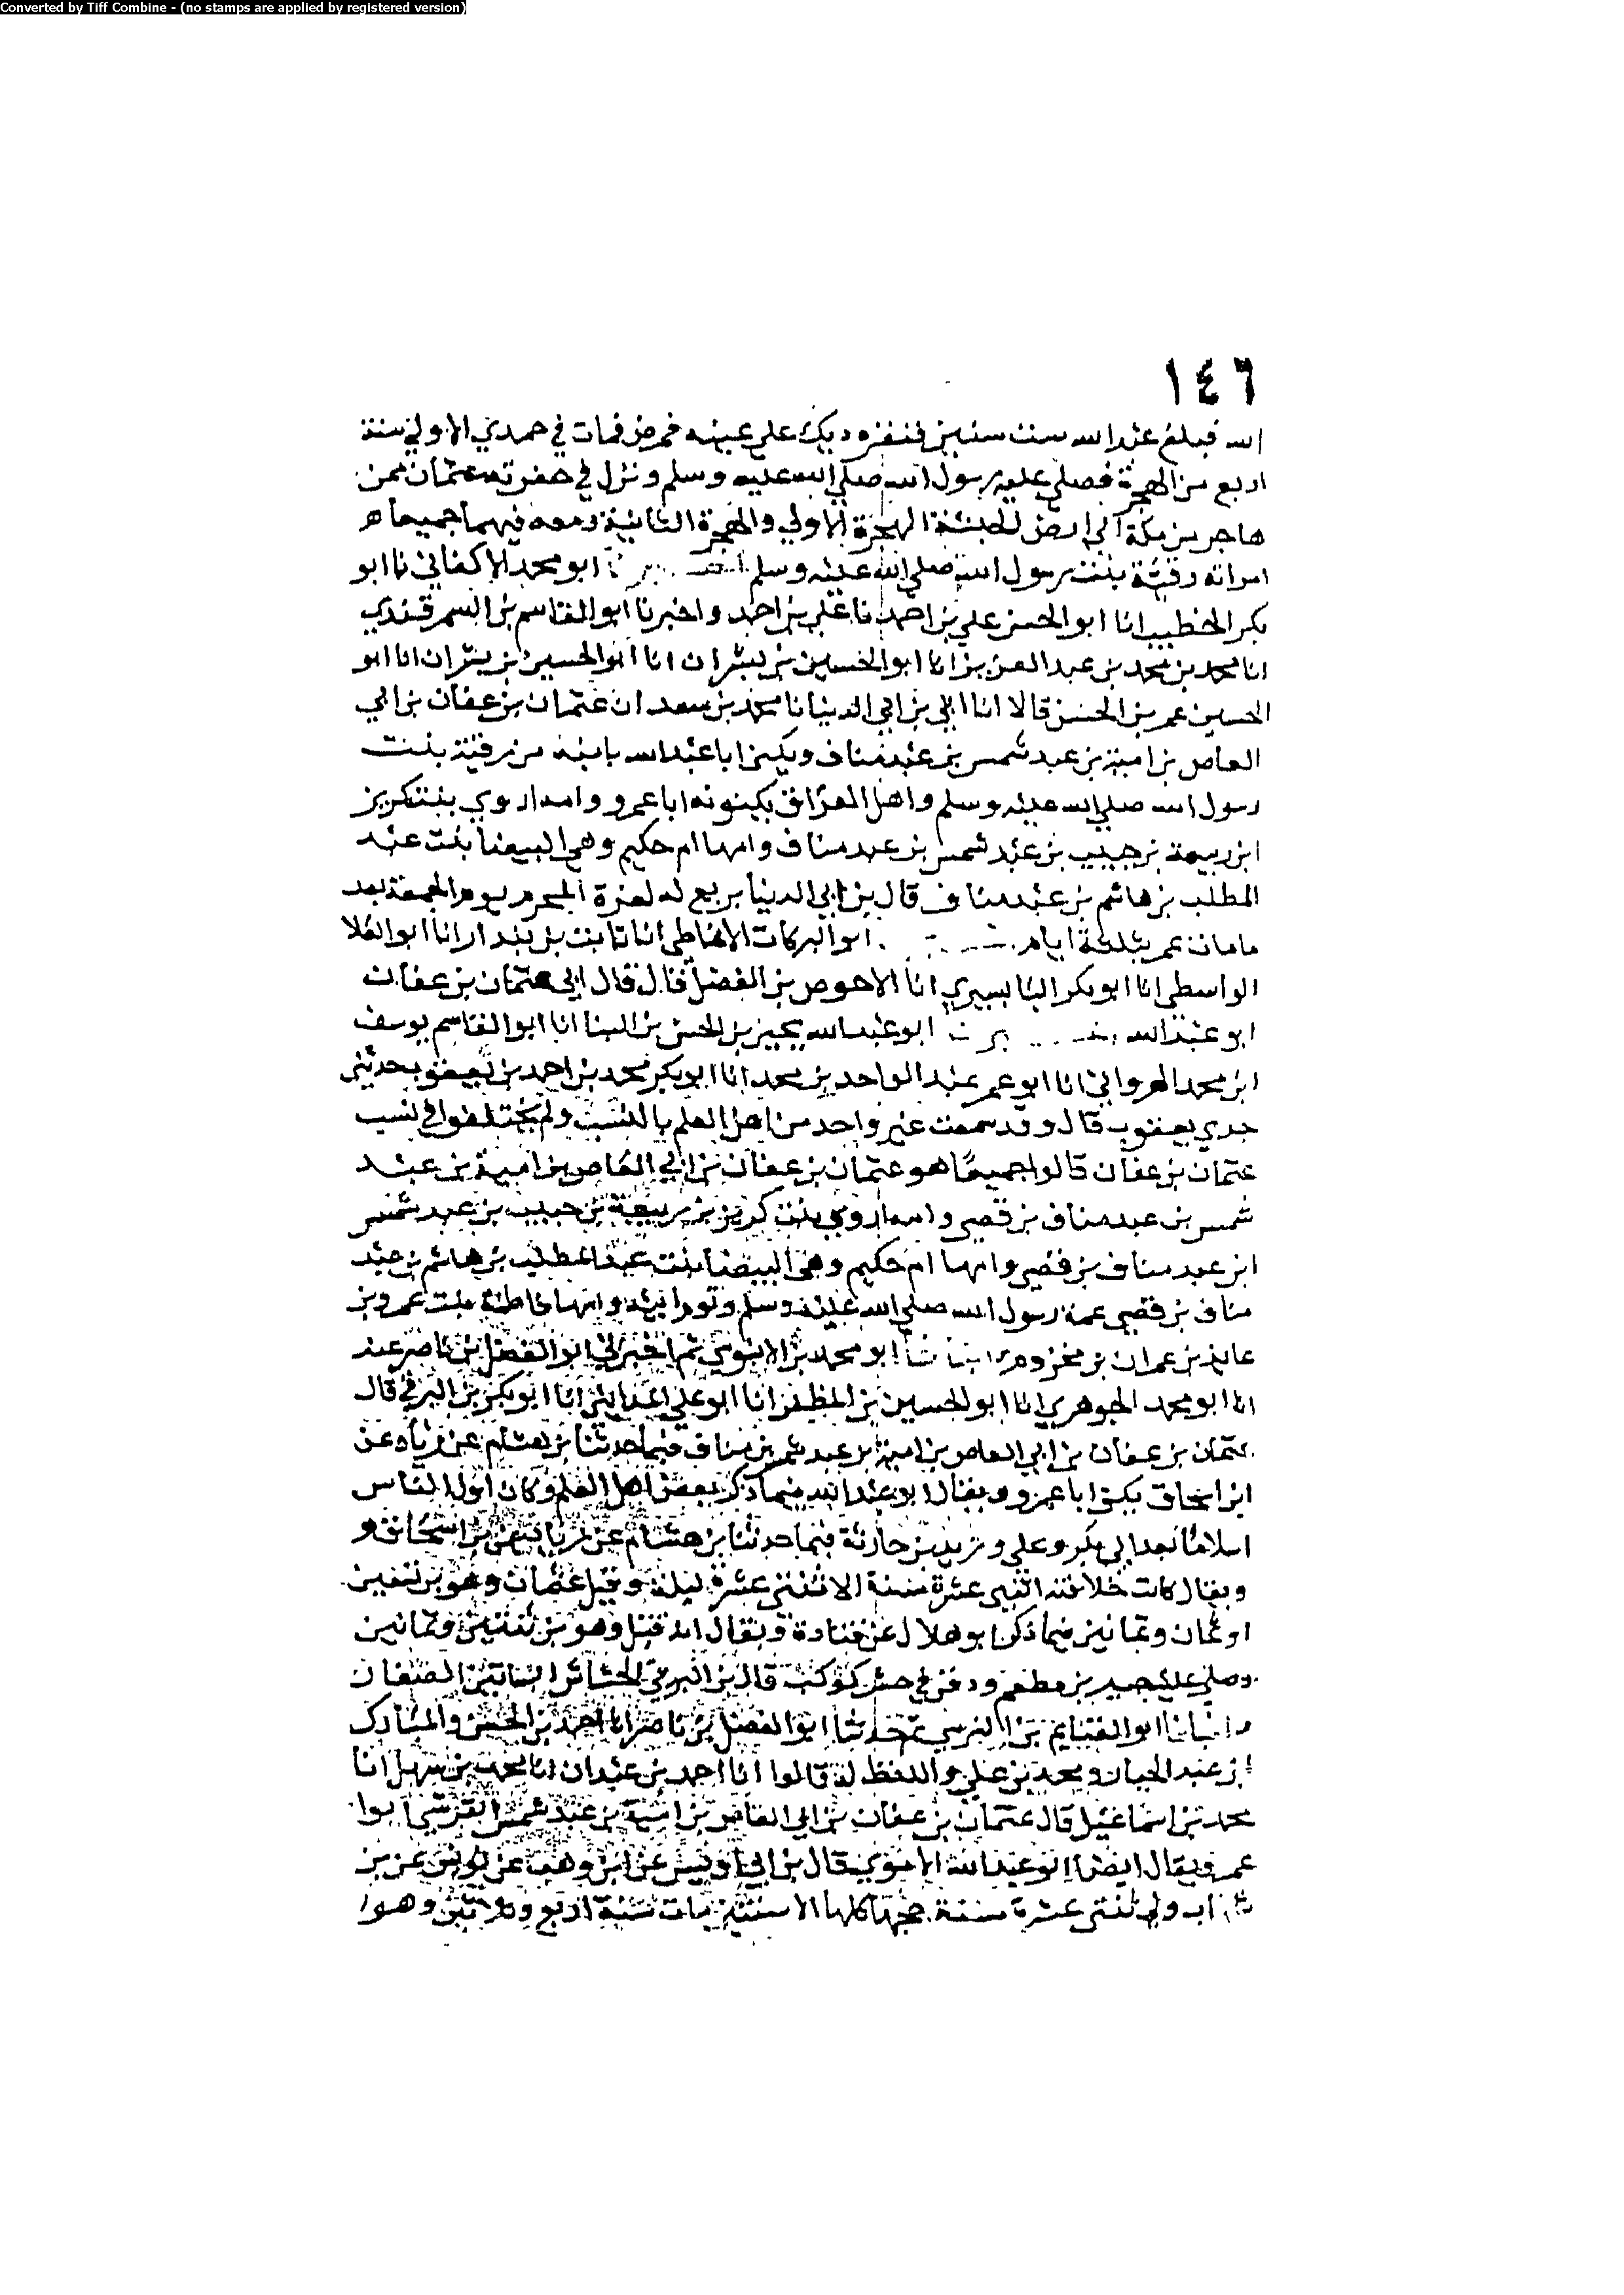 Converted by Tiff Combine - (no stamps are applied by registered version)
١٤٦
الله فبلغ عبدالله ست سنين فنقره ديك على عينه فمرض فمات في جمدي الاولي سنة
اربع من الهجرة فصلي عليه رسول الله صلي الله عليه وسلم ونزل في حفرته عثمان ممن
هاجر من مكة الي ارض الحبشة الهجرة الاولي والهجرة الثانية ومعه فيهما جميعا
امراته رقية بنت رسول الله صلي الله عليه وسلم ابو محمد الاكفاني نا ابو
بكر الخطيب انا ابو الحسن علي بن احمد نا علي بن احمد واخبرنا ابو القاسم بن السمرقندي
انا محمد بن محمد بن عبد العزيز انا ابو الحسين بن بشران انا ابو الحسين بن بشران انا ابو
الحسين عمر بن الحسن قالا انا ابن ابي الدنيا نا محمد بن سعد ان عثمان بن عفان بن ابي
العاص بن امية بن عبد شمس بن عبد مناف ويكنى ابا عبدالله بابنه من رقية بنت
رسول الله صلي الله عليه وسلم واهل العراق يكنونه ابا عمرو وامه اروي بنت كريز
ابن ربيعة بن حبيب بن عبد شمس بن عبد مناف وامها ام حكيم وهي البيضا بنت عبد
المطلب بن هاشم بن عبد مناف قال بن ابي الدنيا بويع له لغرة المحرم يوم الجمعة بعد
ما مات عمر بثلثة ايام ابو البركات الانماطي انا ثابت بن بندار انا ابو العلا
الواسطي انا ابو بكر البابسيري انا الاحوص بن الفضل قال قال ابي عثمان بن عفان
ابو عبد الله ابو عبد الله يحيى بن الحسن بن البنا انا ابو القاسم يوسف
ابن محمد المهرواني انا ابو عمر عبد الواحد بن محمد انا ابو بكر محمد بن احمد بن يعقوب حدثني
جدي يعقوب قال وقد سمعت غير واحد من اهل العلم بالنسب ولم يختلفوا في نسب
عثمان بن عفان قالوا جميعا هو عثمان بن عفان بن ابي العاص بن امية بن عبد
شمس بن عبد مناف بن قصي وامه اروي بنت كريز بن ربيعة بن حبيب بن عبد شمس
ابن عبد مناف بن قصي وامها ام حكيم وهي البيضا بنت عبد المطلب بن هاشم بن عبد
مناف بن قصي عمة رسول الله صلي الله عليه وسلم وتوم ابيه وامها فاطمة بنت عمرو بن
عايذ بن عمران بن مخزوم ابو محمد بن الابنوسي ثم اخبرني ابو الفضل بن ناصر عنه
انا ابو محمد الجوهري انا ابو الحسين بن المظفر انا ابو علي المدايني انا ابو بكر بن البرقي قال
عثمان بن عفان بن ابي العاص بن امية بن عبد شمس بن مناف فيما حدثنا بن هشام عن زياد عن
ابن اسحاق يكنى ابا عمرو ويقال ابو عبد الله فيما ذكر بعض اهل العلم وكان اول الناس
اسلاما بعد ابي بكر وعلي وزيد بن حارثة فيما حدثنا بن هشام عن زياد عن بن اسحاق و
ويقال كانت خلافته اثنتي عشرة سنة الا اثنتي عشرة ليلة وقتل عثمان وهو بن تسعين
او ثمان وثمانين فيما ذكر ابو هلال عن قتادة ويقال انه قتل وهو بن ثنتين وثمانين
وصلي عليه جبير بن مطعم ودفن في حش كوكب قال بن البرقي الحشائش البساتين الصغار
وانبانا ابو الغنايم بن النرسي ثم حدثنا ابو الفضل بن ناصر انا احمد بن الحسن والمبارك
بن عبد الجبار ومحمد بن علي واللفظ له قالوا انا احمد بن عبدان انا محمد بن سهل انا
محمد بن اسماعيل قال عثمان بن عفان بن ابي العاص بن امية بن عبد شمس القرشي ابوا
عمرو ويقال ايضا ابو عبد الله الاموي قال بن ابي اويس عن ابن وهب عن يونس عن بن
شهاب ولي ثنتي عشرة سنة حجها كلها الا سنتين مات سنة اربع وثلاثين وهو